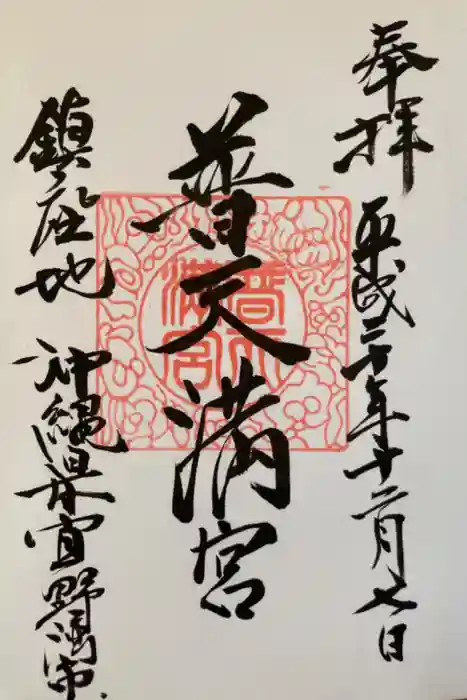 奉拝 平成二十年十二月七日
普天満宮
鎮座地 沖縄県宜野湾市
普天満宮